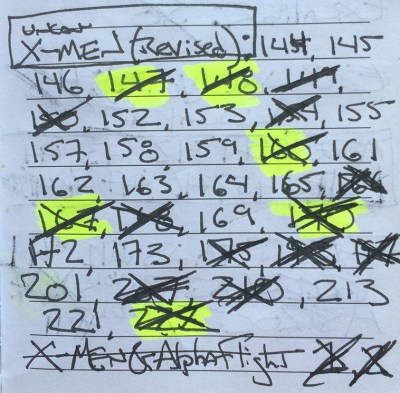 X-MEN (Revised): 144, 145
146, 147, 148, 149,
150, 152, 153, 154, 155
157, 158, 159, 160, 161
162, 163, 164, 165, 166
167, 168, 169, 170
172, 173, 175,
201 207, 210, 213
221, 222
X-MEN & Alpha Flight 2